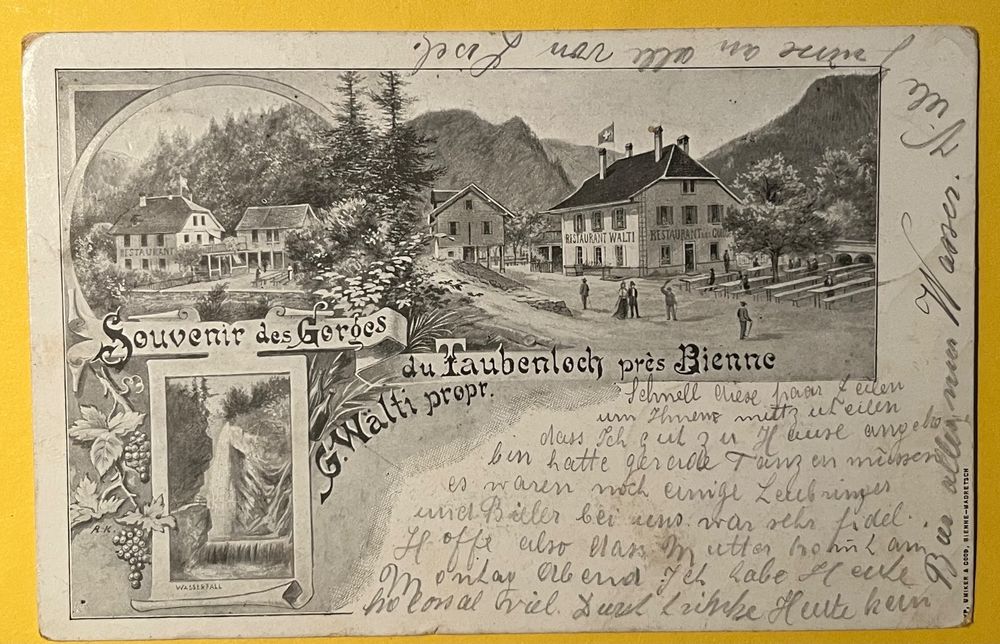 RESTAURANT
RESTAURANT WÄLTI
RESTAURANT
Souvenir des Gorges
du Taubenloch près Bienne
G. Wälti propr.
A.K.
WASSERFALL
Schnell diese paar Zeilen
um Ihnen mittzuteilen
dass Ich gut zu Hause angeko
bin hatte gerade Tanzen müssen
es waren noch einige Leubringer
und Bieler bei uns war sehr fidel.
Hoffe also dass Mutter kommt am
Montag Abend. Ich habe Heute
kolossal viel Durst Heute kein
Bier alles nur Wasser. Viele
Grüsse an alle von
BIENNE-MADRETSCH